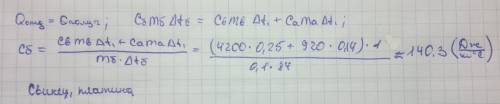 Qотд = Qполуч ; Cбmб Δtб = Cвmв Δt₁ + Cаmа Δt₁ ;
Cб = (Cвmв Δt₁ + Cаmа Δt₁) / (mб · Δtб) = ((4200 · 0,25 + 920 · 0,14) · 1) / (0,1 ·) ≈ 140.3 (Дж / кг°C)
Свинец, платина